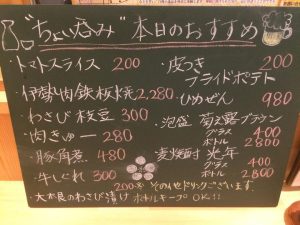 "ちょい呑み"本日のおすすめ
・トマトスライス 200
・伊勢肉鉄板 2,280
・わさび枝豆 300
・肉きゅー 280
・豚角煮 480
・牛しぐれ 300
・皮つき
フライドポテト 200
・ひめぜん 980
・泡盛 菊之露ブラウン
グラス 400
ボトル 2800
・麦焼酎 光年
グラス 400
ボトル 2800
200～ その他ドリンクございます
大木長のわさび漬け ボトルキープOK!!